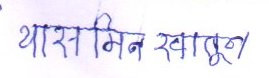 यासमिन खातून